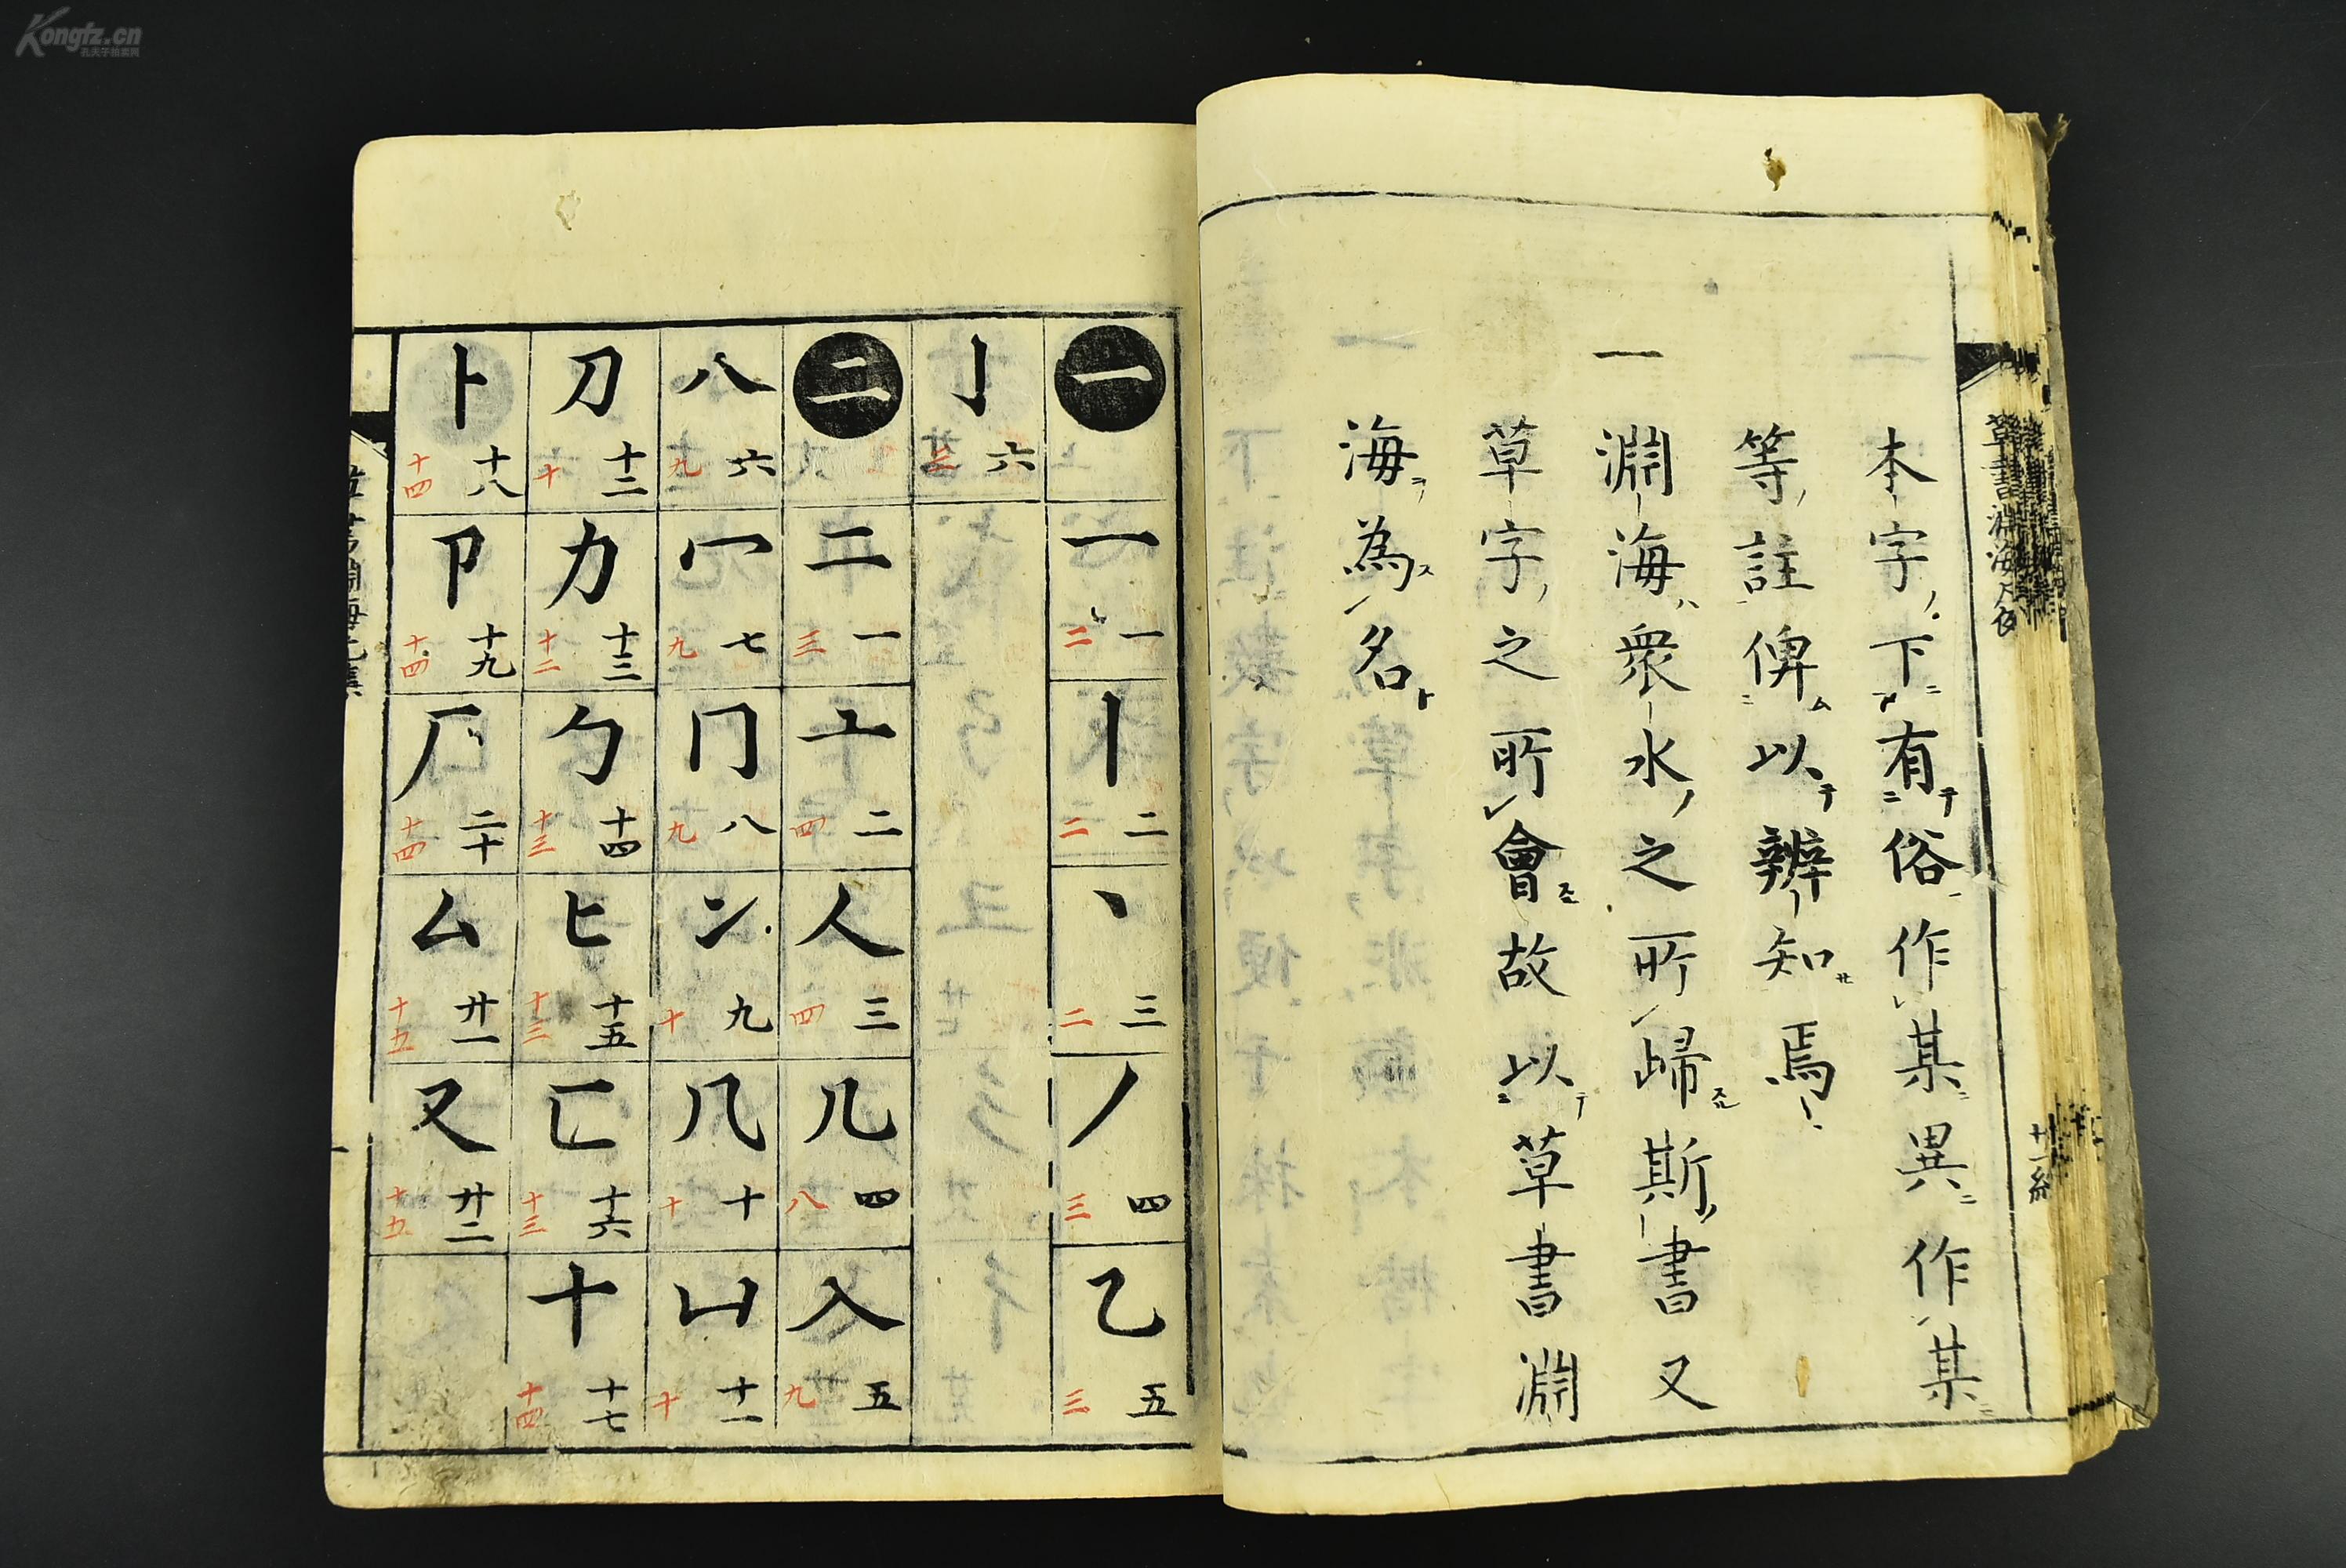 本字下有俗作某異作某
等註俾以辨知焉
一
淵海衆水之所歸斯書又
草字之所會故以草書淵
海為名
草書淵海凡例
一
一 一 二
丨 二 二
丶 三 二
丿 四 三
乙 五 三
亅 六 三
二
二 一 三
亠 二 四
人 三 四
儿 四 八
入 五 九
八 六 九
冖 七 九
冂 八 九
冫 九 十
几 十 十
凵 十一 十
刀 十二 十
力 十三 十二
勹 十四 十三
匕 十五 十三
匚 十六 十三
十 十七 十四
卜 十八 十四
卩 十九 十四
厂 二十 十四
厶 廿一 十五
又 廿二 十五
Kongfz.cn